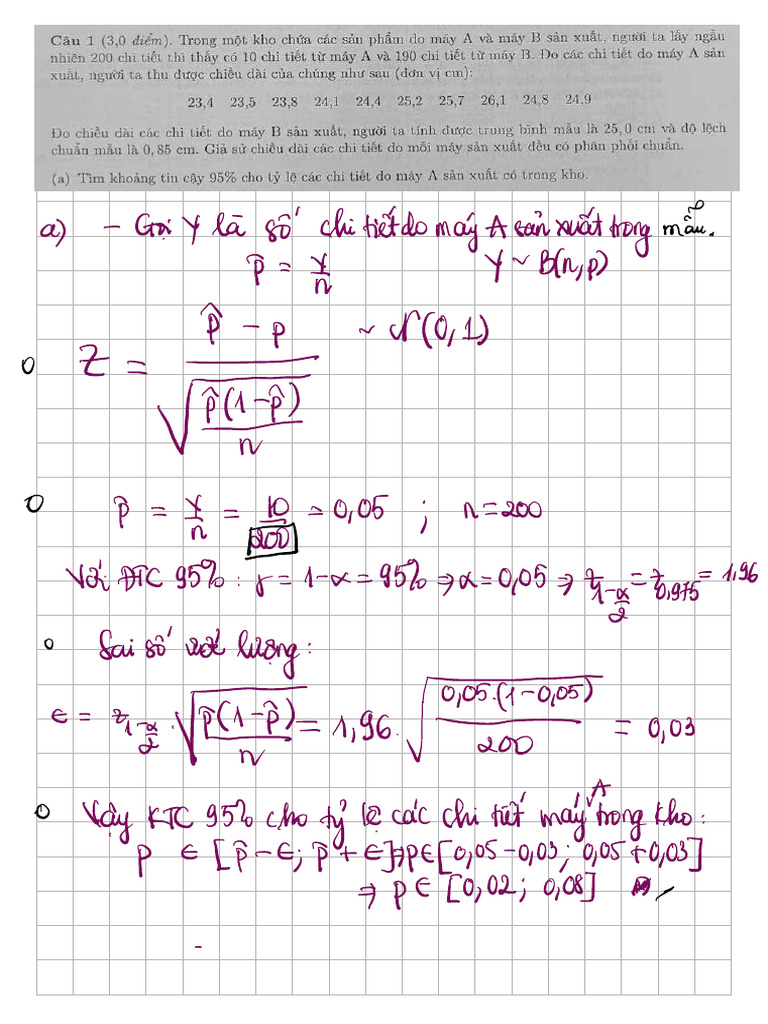 Câu 1 (3,0 điểm). Trong một kho chứa các sản phẩm do máy A và máy B sản xuất, người ta lấy ngẫu
nhiên 200 chi tiết thì thấy có 10 chi tiết từ máy A và 190 chi tiết từ máy B. Đo các chi tiết do máy A sản
xuất, người ta thu được chiều dài của chúng như sau (đơn vị cm):
23,4 23,5 23,8 24,1 24,4 25,2 25,7 26,1 24,8 24,9
Đo chiều dài các chi tiết do máy B sản xuất, người ta tính được trung bình mẫu là 25,0 cm và độ lệch
chuẩn mẫu là 0,85 cm. Giả sử chiều dài các chi tiết do mỗi máy sản xuất đều có phân phối chuẩn.
(a) Tìm khoảng tin cậy 95% cho tỷ lệ các chi tiết do máy A sản xuất có trong kho.
a) - Gọi Y là số chi tiết do máy A sản xuất trong mẫu.
p̂ = Y/n Y ~ B(n,p)
Z = (p̂ - p)/√(p̂(1-p̂)/n) ~ N(0,1)
p̂ = Y/n = 10/200 = 0,05 ; n = 200
Với ĐTC 95% : γ = 1-α = 95% ⇒ α = 0,05 ⇒ z_{1-α/2} = z_{0,975} = 1,96
Sai số ước lượng:
ϵ = z_{1-α/2} · √(p̂(1-p̂)/n) = 1,96 · √(0,05·(1-0,05)/200) = 0,03
Vậy KTC 95% cho tỷ lệ các chi tiết máy A trong kho:
p ∈ [p̂-ϵ; p̂+ϵ] ⇒ p ∈ [0,05-0,03; 0,05+0,03]
⇒ p ∈ [0,02; 0,08]